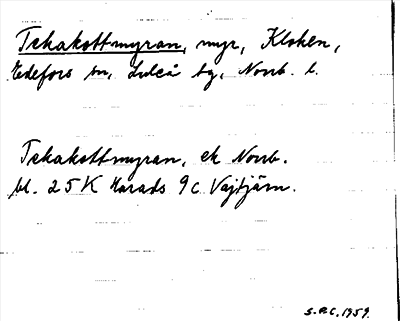 Tekakottmyran, myr, Kloken,
Edefors sn, Luleå tg, Norrb. l.
Tekakottmyran, ek Norrb.
bl. 25K Harads 9c Vajtjärn.
S.P.C. 1959.